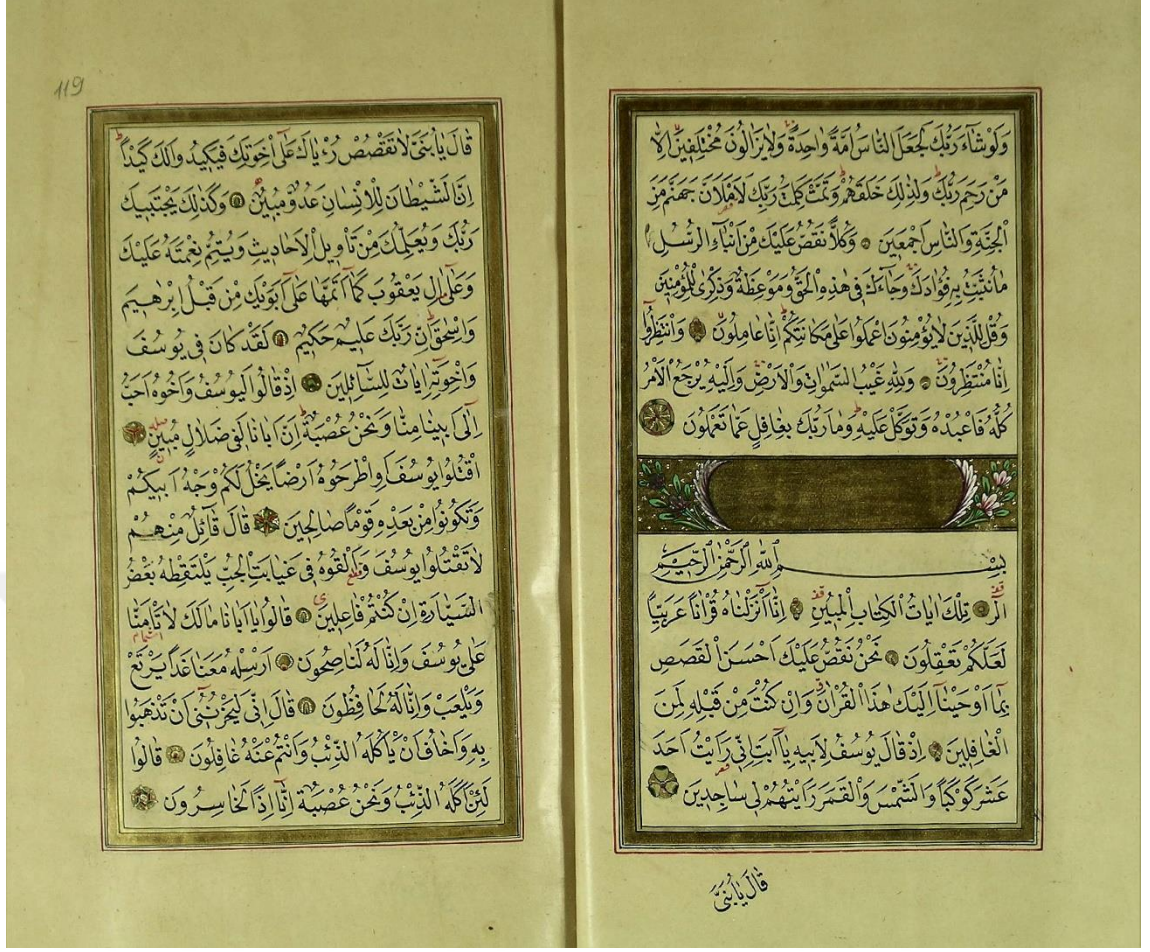 وَلَوْ شَاءَ رَبُّكَ لَجَعَلَ النَّاسَ اُمَّةً وَاحِدَةً وَلَا يَزَالُونَ مُخْتَلِفِينَ اِلَّا
مَنْ رَحِمَ رَبُّكَ وَلِذٰلِكَ خَلَقَهُمْ وَتَمَّتْ كَلِمَتُ رَبِّكَ لَاَمْلَاَنَّ جَهَنَّمَ مِنَ
الْجِنَّةِ وَالنَّاسِ اَجْمَعِينَ وَكُلًّا نَقُصُّ عَلَيْكَ مِنْ اَنْبَاءِ الرُّسُلِ
مَا نُثَبِّتُ بِهِ فُؤَادَكَ وَجَاءَكَ فِي هٰذِهِ الْحَقُّ وَمَوْعِظَةٌ وَذِكْرٰى لِلْمُؤْمِنِينَ
وَقُلْ لِلَّذِينَ لَا يُؤْمِنُونَ اعْمَلُوا عَلٰى مَكَانَتِكُمْ اِنَّا عَامِلُونَ وَانْتَظِرُوا
اِنَّا مُنْتَظِرُونَ وَلِلّٰهِ غَيْبُ السَّمٰوَاتِ وَالْاَرْضِ وَاِلَيْهِ يُرْجَعُ الْاَمْرُ
كُلُّهُ فَاعْبُدْهُ وَتَوَكَّلْ عَلَيْهِ وَمَا رَبُّكَ بِغَافِلٍ عَمَّا تَعْمَلُونَ
بِسْمِ اللّٰهِ الرَّحْمٰنِ الرَّحِيمِ
الٓرٰ تِلْكَ اٰيَاتُ الْكِتَابِ الْمُبِينِ اِنَّا اَنْزَلْنَاهُ قُرْاٰنًا عَرَبِيًّا
لَعَلَّكُمْ تَعْقِلُونَ نَحْنُ نَقُصُّ عَلَيْكَ اَحْسَنَ الْقَصَصِ
بِمَا اَوْحَيْنَا اِلَيْكَ هٰذَا الْقُرْاٰنَ وَاِنْ كُنْتَ مِنْ قَبْلِهِ لَمِنَ
الْغَافِلِينَ اِذْ قَالَ يُوسُفُ لِاَبِيهِ يَا اَبَتِ اِنِّي رَاَيْتُ اَحَدَ
عَشَرَ كَوْكَبًا وَالشَّمْسَ وَالْقَمَرَ رَاَيْتُهُمْ لِي سَاجِدِينَ
قَالَ يَا بُنَيَّ
119
قَالَ يَا بُنَيَّ لَا تَقْصُصْ رُءْيَاكَ عَلٰى اِخْوَتِكَ فَيَكِيدُوا لَكَ كَيْدًا
اِنَّ الشَّيْطَانَ لِلْاِنْسَانِ عَدُوٌّ مُبِينٌ وَكَذٰلِكَ يَجْتَبِيكَ
رَبُّكَ وَيُعَلِّمُكَ مِنْ تَاْوِيلِ الْاَحَادِيثِ وَيُتِمُّ نِعْمَتَهُ عَلَيْكَ
وَعَلٰى اٰلِ يَعْقُوبَ كَمَا اَتَمَّهَا عَلٰى اَبَوَيْكَ مِنْ قَبْلُ اِبْرٰهِيمَ
وَاِسْحٰقَ اِنَّ رَبَّكَ عَلِيمٌ حَكِيمٌ لَقَدْ كَانَ فِي يُوسُفَ
وَاِخْوَتِهِ اٰيَاتٌ لِلسَّائِلِينَ اِذْ قَالُوا لَيُوسُفُ وَاَخُوهُ اَحَبُّ
اِلٰى اَبِينَا مِنَّا وَنَحْنُ عُصْبَةٌ اِنَّ اَبَانَا لَفِي ضَلَالٍ مُبِينٍ
اقْتُلُوا يُوسُفَ اَوِ اطْرَحُوهُ اَرْضًا يَخْلُ لَكُمْ وَجْهُ اَبِيكُمْ
وَتَكُونُوا مِنْ بَعْدِهِ قَوْمًا صَالِحِينَ قَالَ قَائِلٌ مِنْهُمْ
لَا تَقْتُلُوا يُوسُفَ وَاَلْقُوهُ فِي غَيَابَتِ الْجُبِّ يَلْتَقِطْهُ بَعْضُ
السَّيَّارَةِ اِنْ كُنْتُمْ فَاعِلِينَ قَالُوا يَا اَبَانَا مَالَكَ لَا تَاْمَنَّا
عَلٰى يُوسُفَ وَاِنَّا لَهُ لَنَاصِحُونَ اَرْسِلْهُ مَعَنَا غَدًا يَرْتَعْ
وَيَلْعَبْ وَاِنَّا لَهُ لَحَافِظُونَ قَالَ اِنِّي لَيَحْزُنُنِي اَنْ تَذْهَبُوا
بِهِ وَاَخَافُ اَنْ يَاْكُلَهُ الذِّئْبُ وَاَنْتُمْ عَنْهُ غَافِلُونَ قَالُوا
لَئِنْ اَكَلَهُ الذِّئْبُ وَنَحْنُ عُصْبَةٌ اِنَّا اِذًا لَخَاسِرُونَ